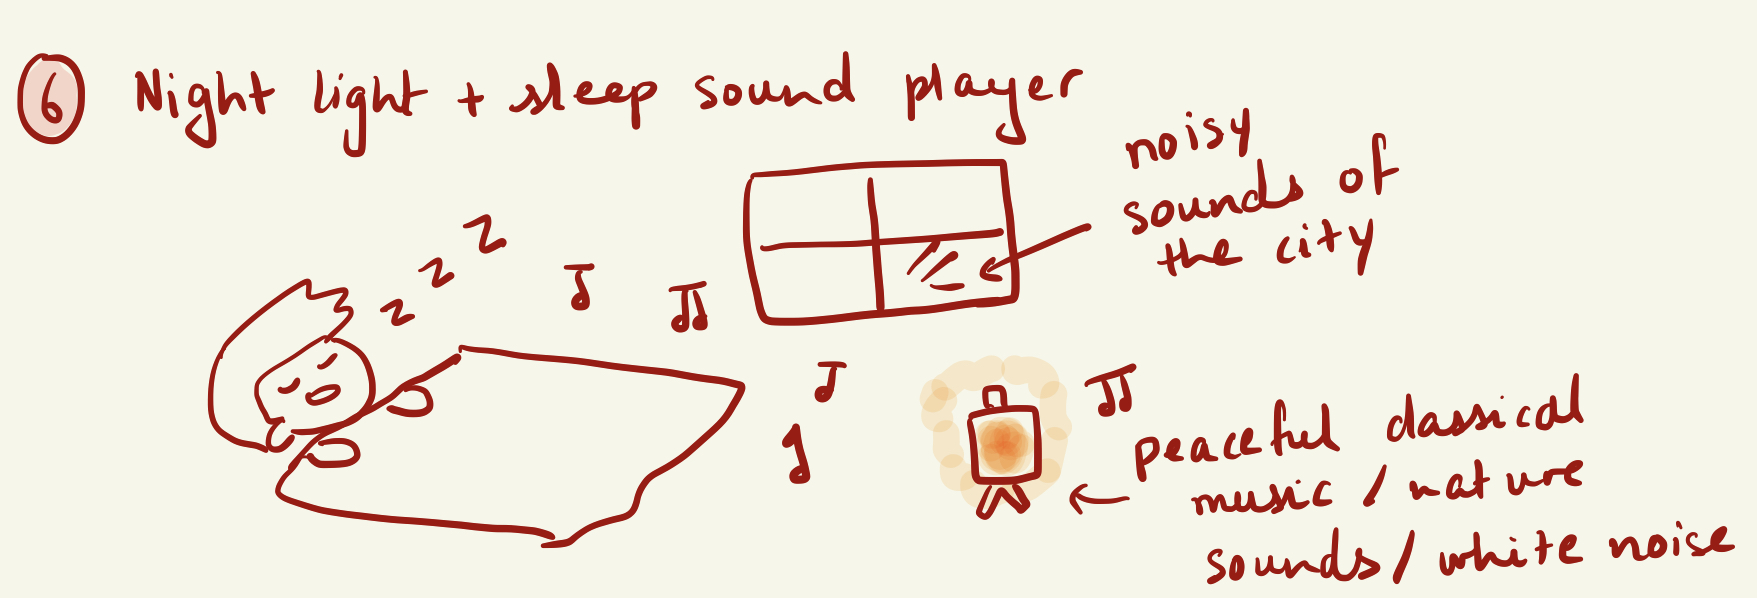 6 Night light + sleep sound player
noisy
sounds of
the city
z z z
peaceful classical
music / nature
sounds / white noise